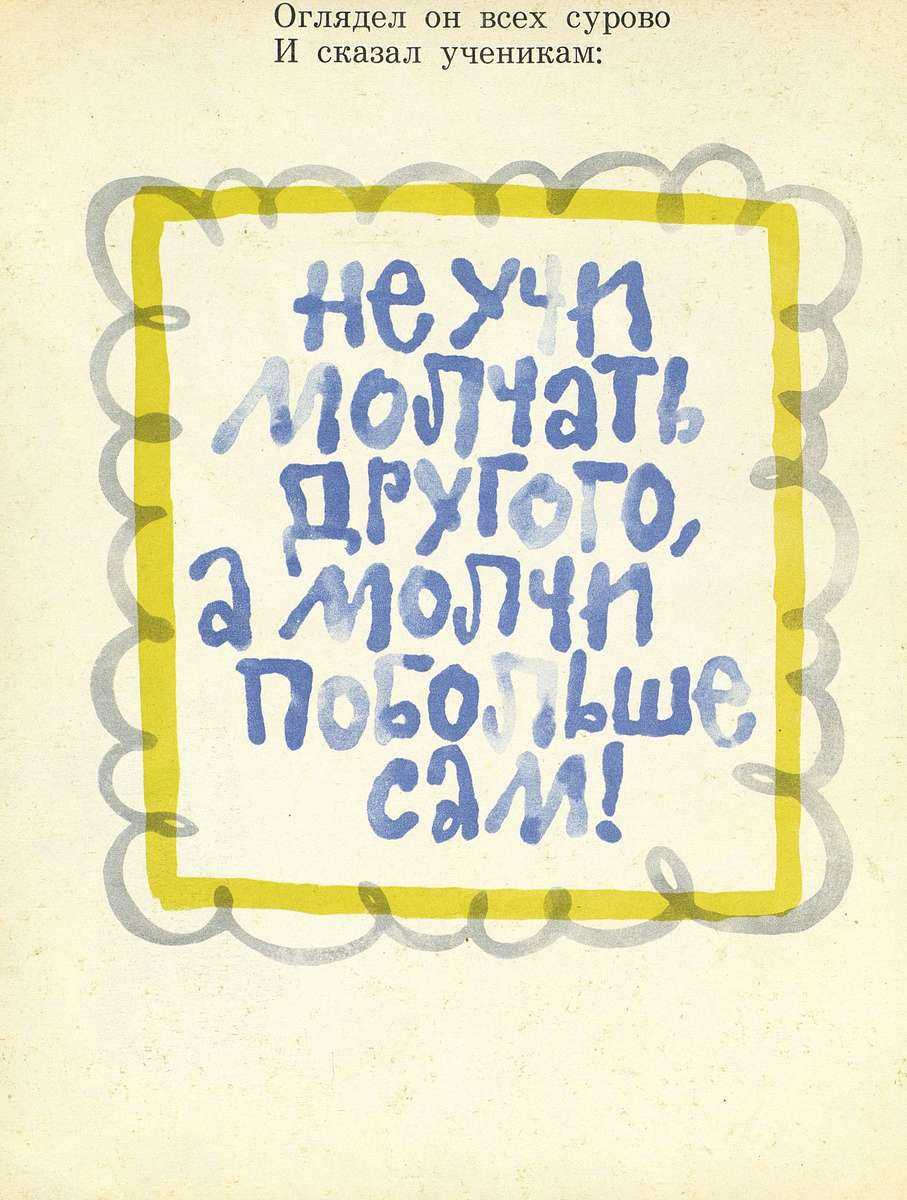 Оглядел он всех сурово
И сказал ученикам:
не учи
молчать
другого,
а молчи
побольше
сам!